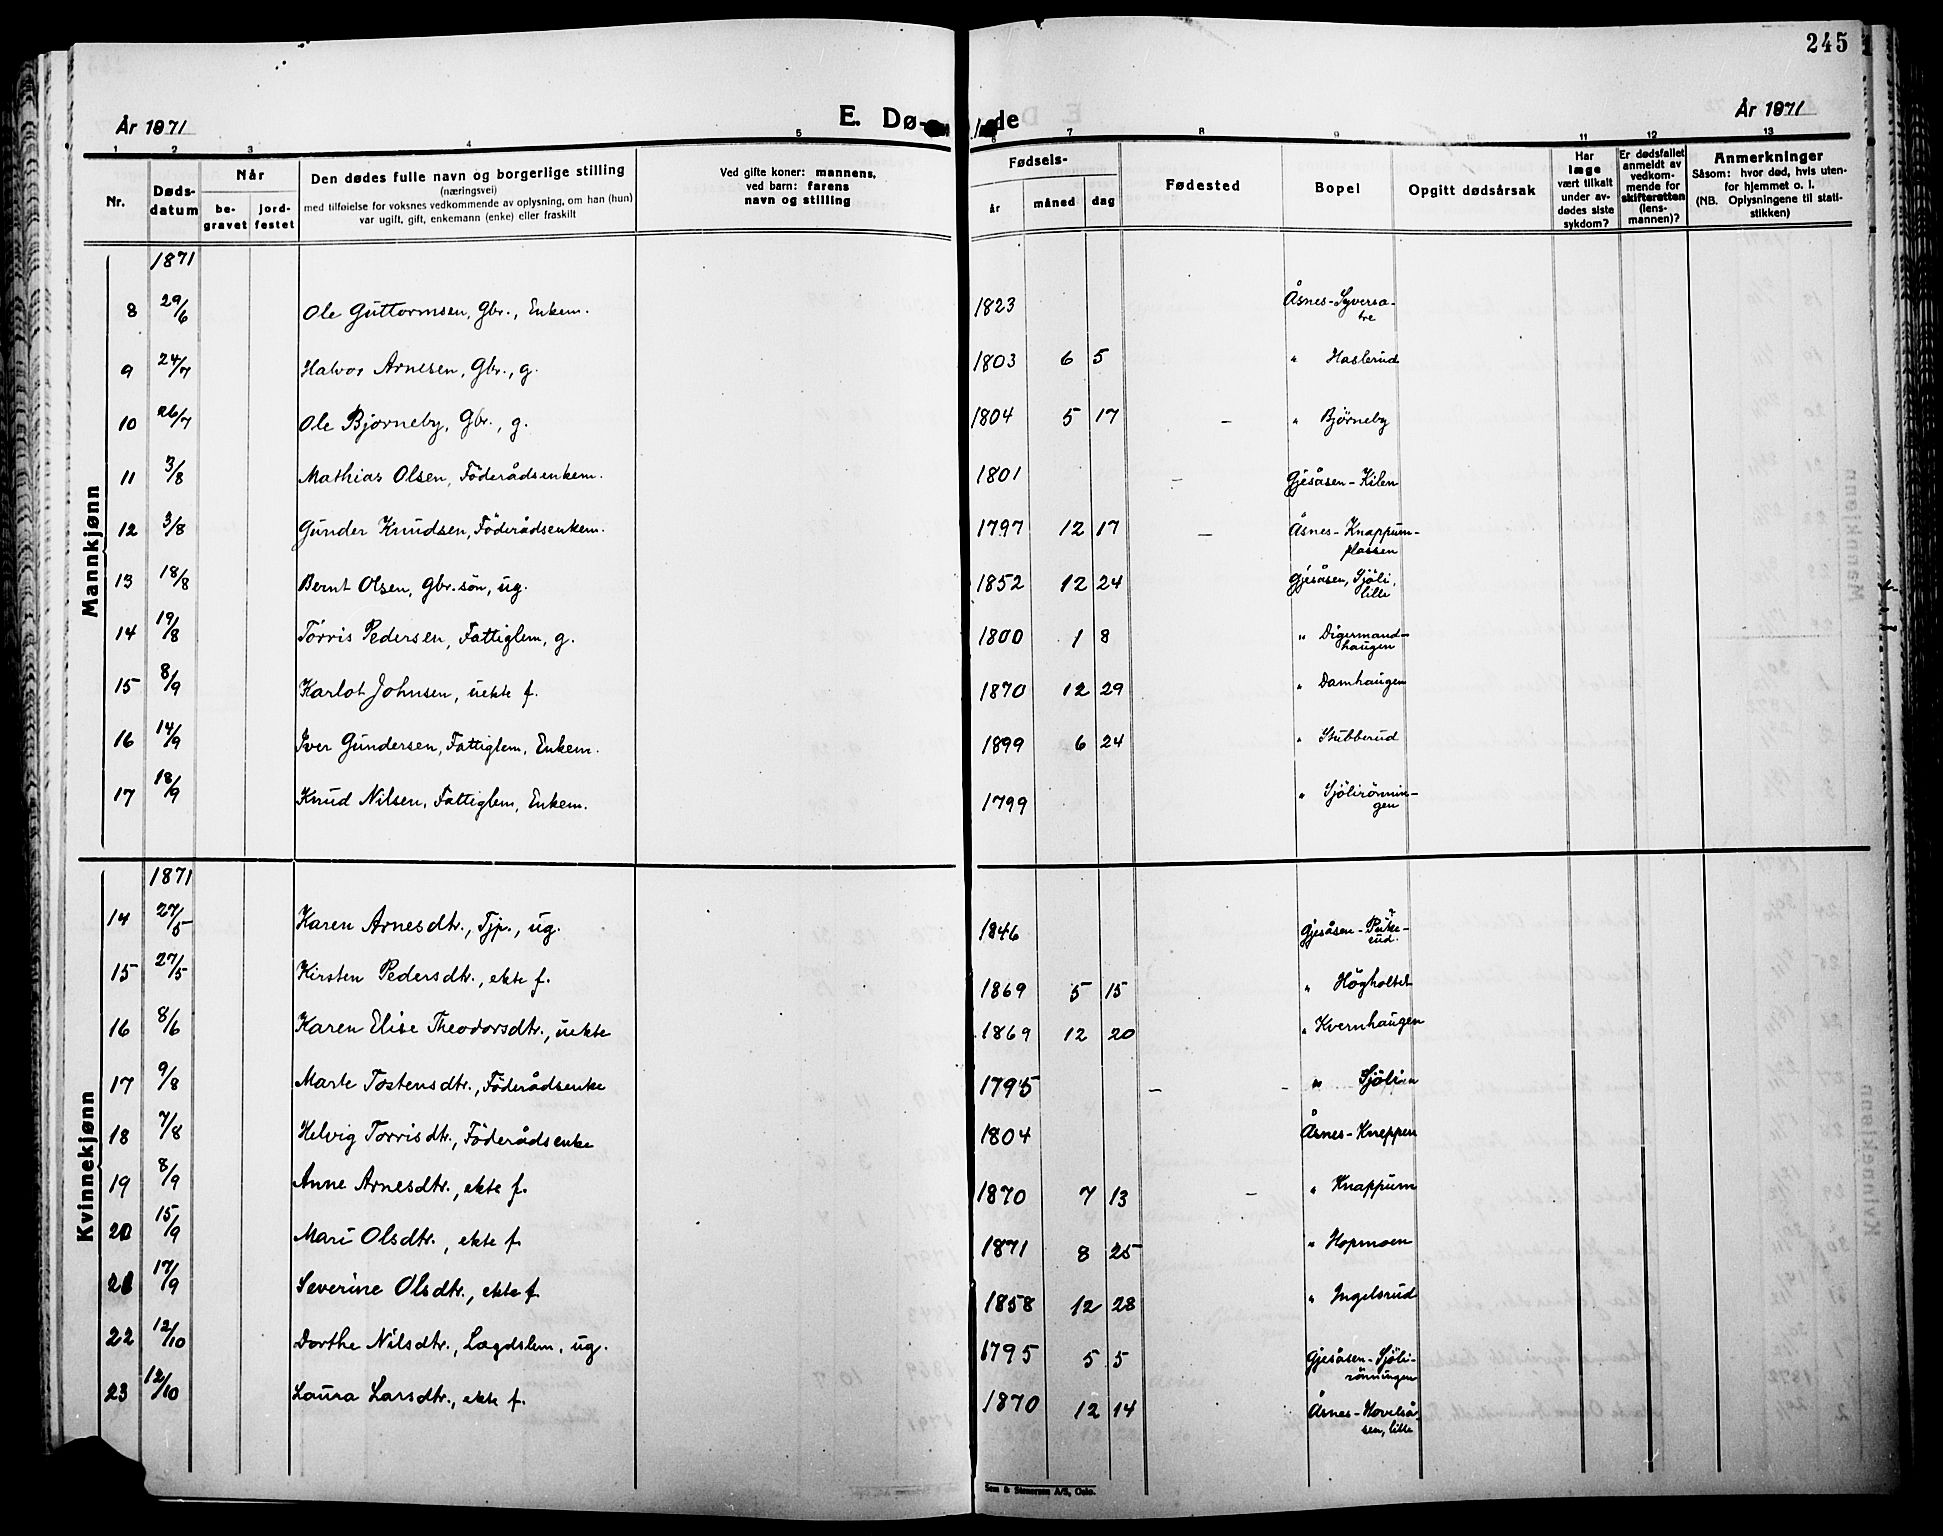 245
År 1871
E. Dø-
de
År 1871
1 2 3 4 5 6 7 8 9 10 11 12 13
Nr.
Døds-
datum
Når
be-
gravet
jord-
festet
Den dødes fulle navn og borgerlige stilling
(næringsvei)
med tilføielse for voksnes vedkommende av oplysning, om han (hun)
var ugift, gift, enkemann (enke) eller fraskilt
Ved gifte koner: mannens,
ved barn: farens
navn og stilling
Fødsels-
år måned dag
Fødested
Bopel
Opgitt dødsårsak
Har
læge
vært tilkalt
under av-
dødes siste
sykdom?
Er dødsfallet
anmeldt av
vedkom-
mende for
skifteretten
(lens-
mannen)?
Anmerkninger
Såsom: hvor død, hvis uten-
for hjemmet o. l.
(NB. Oplysningene til stati-
stikken)
Mannkjønn
1871
8 29/6 Ole Guttormsen, Gbr., Enkem. 1823 Åsnes-Syversæ-
tre
9 24/7 Halvor Arnesen, Gbr., g. 1803 6 5 " Haslerud
10 26/7 Ole Bjørneby, Gbr., g. 1804 5 17 – " Bjørneby
11 3/8 Mathias Olsen, Föderådsenkem. 1801 – Gjesåsen-Kilen
12 3/8 Gunder Knudsen, Föderådsenkem. 1797 12 17 – Åsnes-Knappum-
plassen
13 18/8 Bernt Olsen, Gbr.sön, ug. 1852 12 24 Gjesåsen, Sjöli,
lille
14 19/8 Torris Pedersen, Fattiglem, g. 1800 1 8 " Digermand-
haugen
15 8/9 Karlot Johnsen, uekte f. 1870 12 29 " Damhaugen
16 14/9 Iver Gundersen, Fattiglem, Enkem. 1899 6 24 " Stubberud
17 18/9 Knud Nilsen, Fattiglem, Enkem. 1799 " Sjölirönnin-
gen
Kvinnekjønn
1871
14 27/5 Karen Arnesdtr., Tjp., ug. 1846 Gjesåsen-Puke-
rud.
15 27/5 Kirsten Pedersdtr., ekte f. 1869 5 15 " Högholtet
16 8/6 Karen Elise Theodorsdtr., uekte 1869 12 20 " Kvernhaugen
17 9/8 Marte Tostensdtr., Föderådsenke 1795 – – " Sjölien
18 7/8 Helvig Torrisdtr., Föderådsenke 1804 Åsnes-Kneppen
19 8/9 Anne Arnesdtr., ekte f. 1870 7 13 – " Knappum
20 15/9 Mari Olsdtr., ekte f. 1871 8 25 " Hopmoen
21 17/9 Severine Olsdtr., ekte f. 1858 12 28 " Ingelsrud
22 12/10 Dorthe Nilsdtr., Lægdslem, ug. 1795 5 5 Gjesåsen-Sjöli-
rönningen
23 12/10 Laura Larsdtr., ekte f. 1870 12 14 Åsnes-Hovelså-
sen, lille
Sem & Stenersen A/S, Oslo.